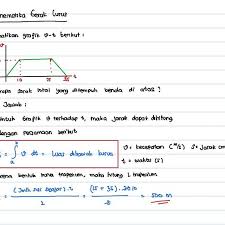 menghitung Gerak Lurus
atikan grafik v-t berikut :
v
10
25
35
t
rapa jarak total yang ditempuh benda di atas ?
Jawab :
untuk grafik v terhadap t, maka jarak dapat dihitung
dengan persamaan berikut
s = ∫ v dt = Luas dibawah kurva
v = kecepatan (m/s) s = Jarak
t = waktu (s)
arena bentuk kurva trapesium, maka hitung L trapesium
= (Jmlh sisi sejajar) . t = (15 + 35) . 20 = 500 m
2 2